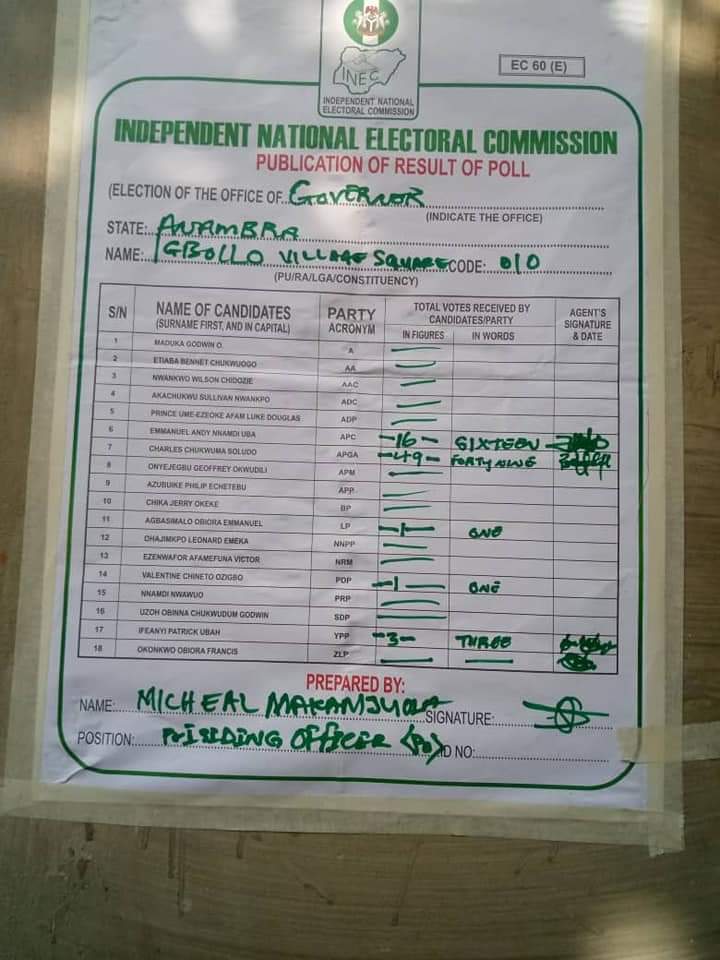 INEC
INDEPENDENT NATIONAL
ELECTORAL COMMISSION
EC 60 (E)
INDEPENDENT NATIONAL ELECTORAL COMMISSION
PUBLICATION OF RESULT OF POLL
(ELECTION OF THE OFFICE OF GOVERNOR
(INDICATE THE OFFICE)
STATE: ANAMBRA
NAME: IGBOLLO VILLAGE SQUARE CODE: 010
(PU/RA/LGA/CONSTITUENCY)
S/N NAME OF CANDIDATES (SURNAME FIRST, AND IN CAPITAL) PARTY ACRONYM TOTAL VOTES RECEIVED BY CANDIDATES/PARTY IN FIGURES IN WORDS AGENT'S SIGNATURE & DATE
1 MADUKA GODWIN O. A —
2 ETIABA BENNET CHUKWUOGO AA —
3 NWANKWO WILSON CHIDOZIE AAC —
4 AKACHUKWU SULLIVAN NWANKPO ADC —
5 PRINCE UME-EZEOKE AFAM LUKE DOUGLAS ADP —
6 EMMANUEL ANDY NNAMDI UBA APC -16- SIXTEEN
7 CHARLES CHUKWUMA SOLUDO APGA -49- FORTY NINE
8 ONYEJEGBU GEOFFREY OKWUDILI APM —
9 AZUBUIKE PHILIP ECHETEBU APP —
10 CHIKA JERRY OKEKE BP —
11 AGBASIMALO OBIORA EMMANUEL LP -1- ONE
12 OHAJIMKPO LEONARD EMEKA NNPP —
13 EZENWAFOR AFAMEFUNA VICTOR NRM —
14 VALENTINE CHINETO OZIGBO PDP -1- ONE
15 NNAMDI NWAWUO PRP —
16 UZOH OBINNA CHUKWUDUM GODWIN SDP —
17 IFEANYI PATRICK UBAH YPP -3- THREE
18 OKONKWO OBIORA FRANCIS ZLP — —
PREPARED BY:
NAME: MICHEAL SIGNATURE:
POSITION: PRISIDING OFFICER (PO) ID NO: